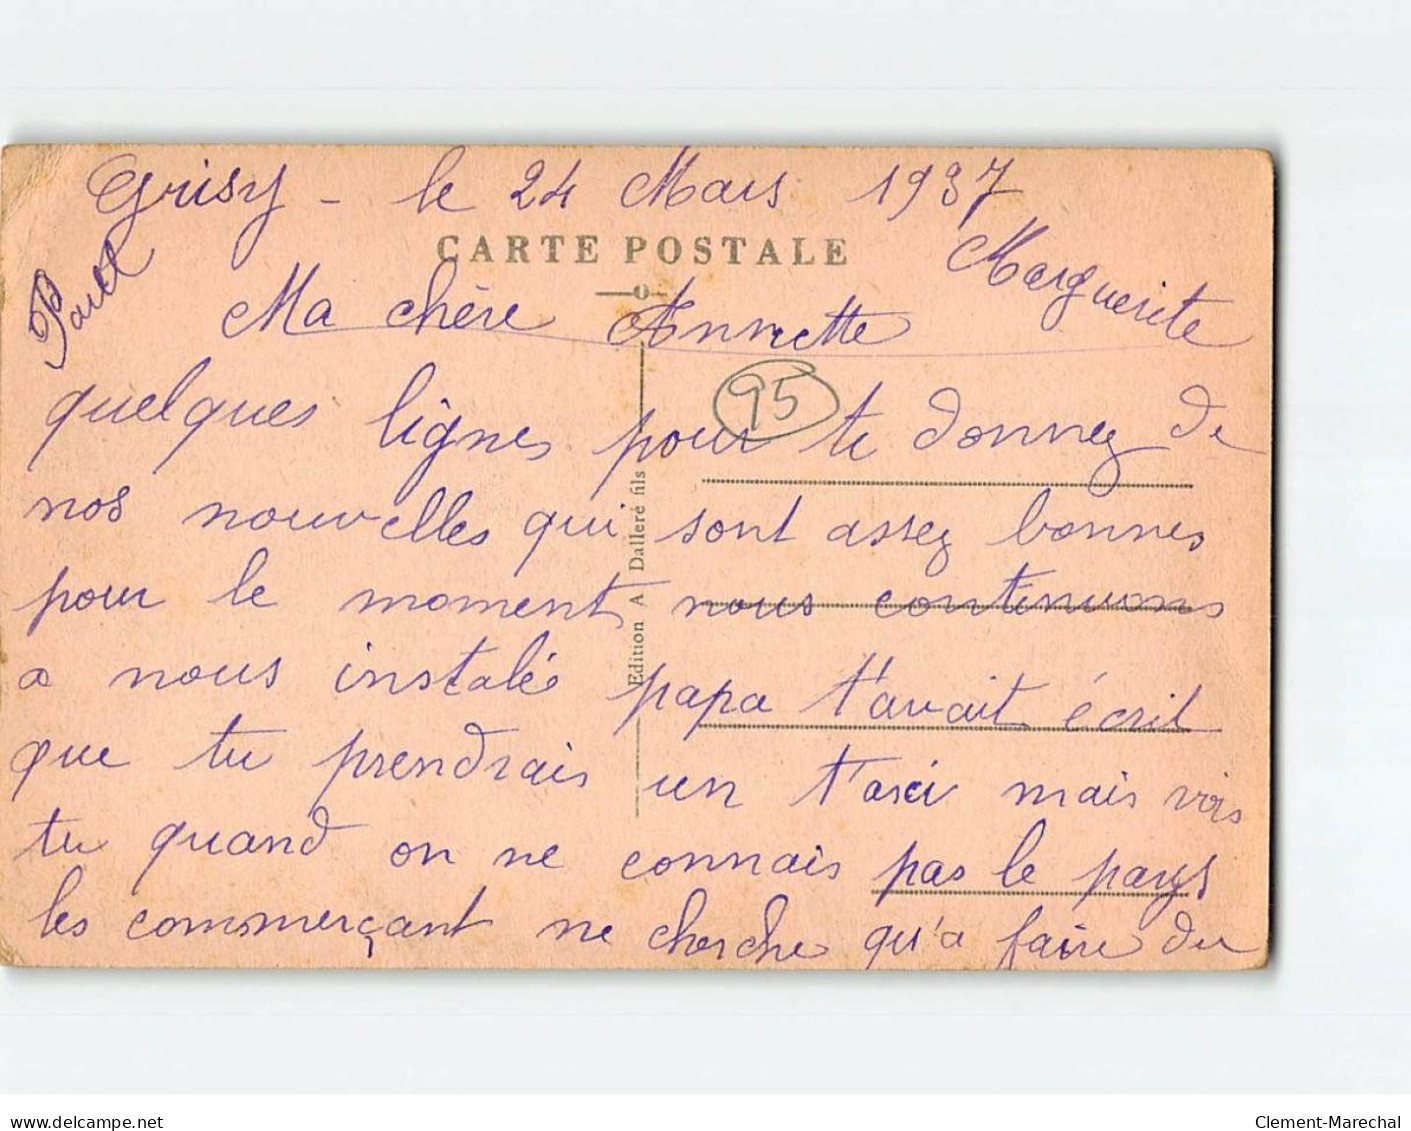 Grisy - le 24 Mars 1937
CARTE POSTALE
Marguerite
Ma chère Annette
quelques lignes pour te donnez de
95
nos nouvelles qui sont assez bonnes
pour le moment nous continuons
a nous instalés papa t'avait écrit
que tu prendrais un taxi mais vois
tu quand on ne connais pas le pays
les commerçant ne cherche qu'a faire du
Edition A Dalleré fils
www.delcampe.net
Clement-Marechal